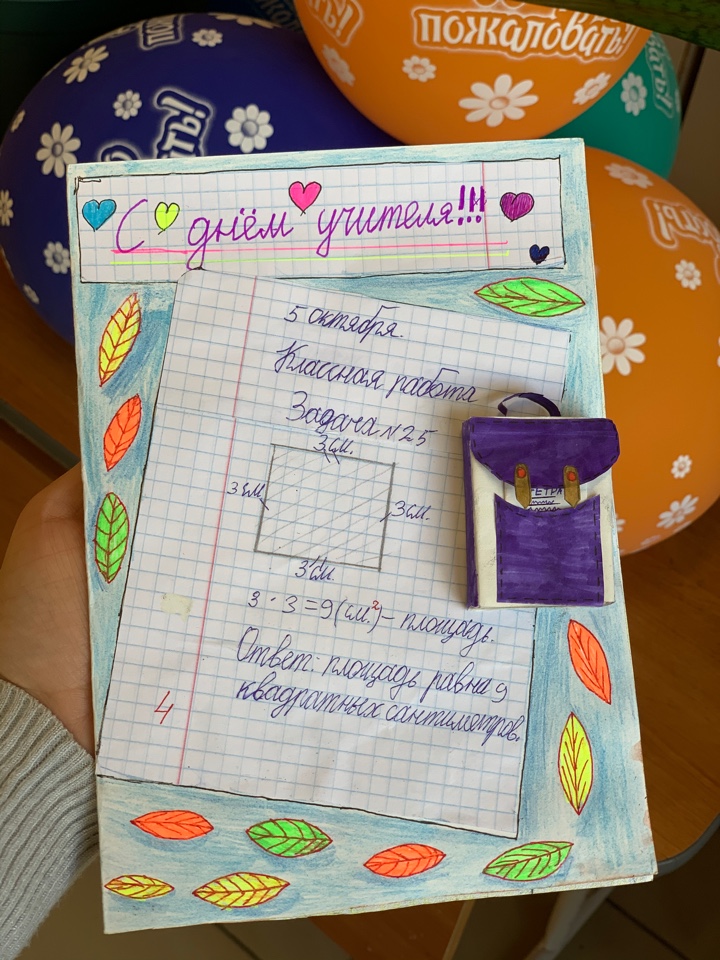 пожаловать!
С днём учителя!!!
5 октября.
Классная работа
Задача №25
3см.
3см
3см.
3см.
ТЕТРА
3 · 3 = 9 (см.²) – площадь.
Ответ: площадь равна 9
квадратных сантиметров.
4